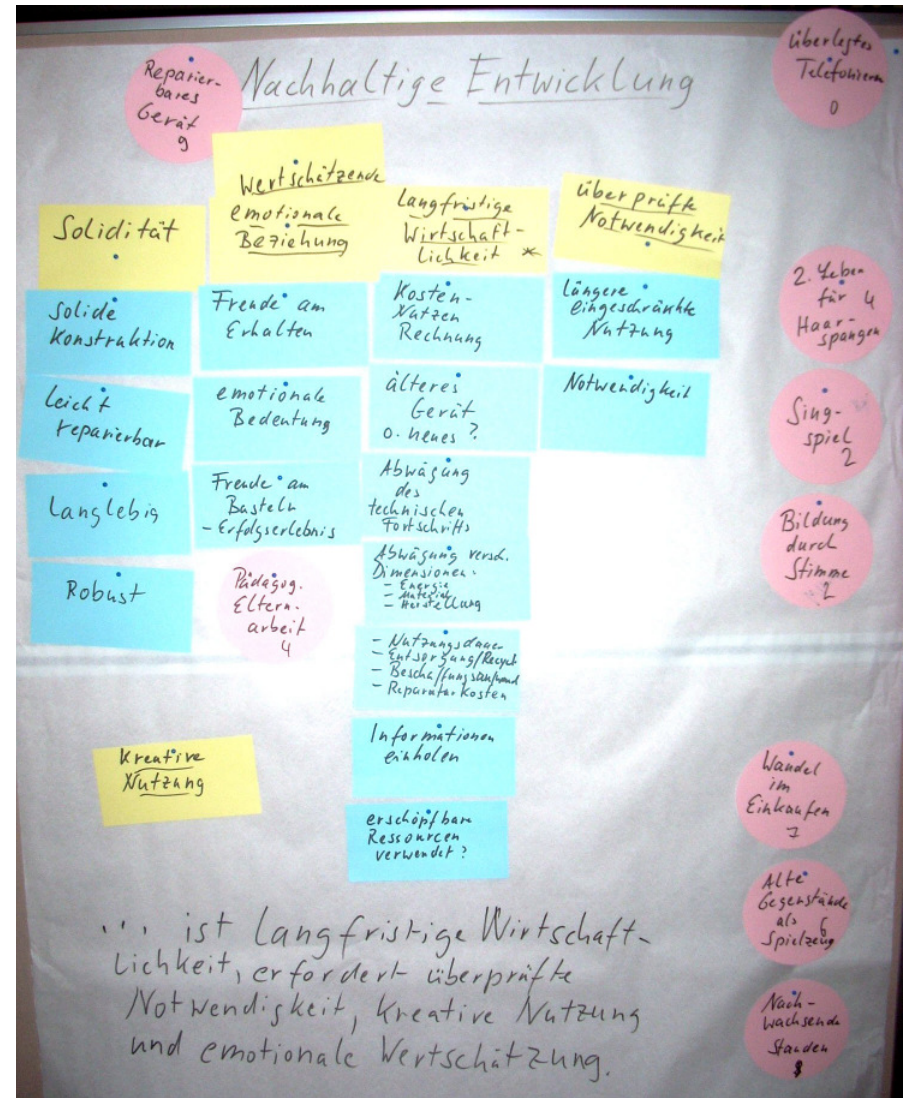 Nachhaltige Entwicklung
Reparier-
bares
Gerät
9
Überlegtes
Telefonieren
0
Solidität
Solide
Konstruktion
leicht
reparierbar
Langlebig
Robust
Wertschätzende
emotionale
Beziehung
Freude am
Erhalten
emotionale
Bedeutung
Freude am
Basteln
- Erfolgserlebnis
Pädagog.
Eltern-
arbeit
4
Langfristige
Wirtschaft-
lichkeit *
Kosten-
Nutzen
Rechnung
älteres
Gerät
o. neues ?
Abwägung
des
technischen
Fortschritts
Abwägung versch.
Dimensionen.
- Energie
- Material
- Herstellung
- Nutzungsdauer
- Entsorgung/Recycl
- Beschaffungsaufwand
- Reparaturkosten
Informationen
einholen
erschöpfbare
Ressourcen
verwendet ?
überprüfte
Notwendigkeit
Längere
eingeschränkte
Nutzung
Notwendigkeit
Kreative
Nutzung
2. Leben
für 4
Haar-
spangen
Sing-
spiel
2
Bildung
durch
Stimme
2
Wandel
im
Einkaufen
7
Alte
Gegenstände
als 6
Spielzeug
Nach-
wachsende
Stauden
8
... ist langfristige Wirtschaft-
lichkeit, erfordert überprüfte
Notwendigkeit, kreative Nutzung
und emotionale Wertschätzung.